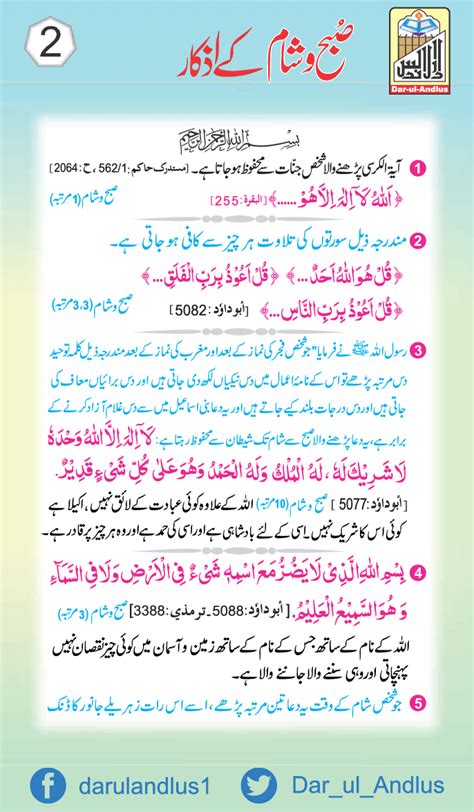 2
صبح و شام کے اذکار
Dar-ul-Andlus
بسم اللہ الرحمن الرحیم
1 آیۃ الکرسی پڑھنے والا شخص جنات سے محفوظ ہو جاتا ہے۔ [مستدرک حاکم: 562/1، ح: 2064]
﴿اَللّٰهُ لَاۤ اِلٰهَ اِلَّا هُوَ ......﴾ [البقرة: 255] صبح و شام (1 مرتبہ)
2 مندرجہ ذیل سورتوں کی تلاوت ہر چیز سے کافی ہو جاتی ہے۔
﴿قُلْ هُوَ اللّٰهُ اَحَدٌ ...﴾ ﴿قُلْ اَعُوْذُ بِرَبِّ الْفَلَقِ ...﴾
﴿قُلْ اَعُوْذُ بِرَبِّ النَّاسِ ...﴾ [ابوداؤد: 5082] صبح و شام (3،3 مرتبہ)
3 رسول اللہ ﷺ نے فرمایا "جو شخص فجر کی نماز کے بعد اور مغرب کی نماز کے بعد مندرجہ ذیل کلمہ توحید
دس مرتبہ پڑھے تو اس کے نامۂ اعمال میں دس نیکیاں لکھ دی جاتی ہیں اور دس برائیاں معاف کی
جاتی ہیں اور دس درجات بلند کیے جاتے ہیں اور یہ دعا بنی اسماعیل میں سے دس غلام آزاد کرنے کے
برابر ہے، یہ دعا پڑھنے والا صبح سے شام تک شیطان سے محفوظ رہتا ہے: لَاۤ اِلٰهَ اِلَّا اللّٰهُ وَحْدَهٗ
لَا شَرِيْكَ لَهٗ، لَهُ الْمُلْكُ وَلَهُ الْحَمْدُ وَهُوَ عَلٰى كُلِّ شَیْءٍ قَدِيْرٌ.
[ابوداؤد: 5077] صبح و شام (10 مرتبہ) اللہ کے علاوہ کوئی عبادت کے لائق نہیں، اکیلا ہے
کوئی اس کا شریک نہیں، اسی کے لئے بادشاہی ہے اور اسی کی حمد ہے اور وہ ہر چیز پر قادر ہے۔
4 بِسْمِ اللّٰهِ الَّذِیْ لَا يَضُرُّ مَعَ اسْمِهٖ شَیْءٌ فِی الْاَرْضِ وَلَا فِی السَّمَآءِ
وَهُوَ السَّمِيْعُ الْعَلِيْمُ. [ابوداؤد: 5088۔ ترمذی: 3388] صبح و شام (3 مرتبہ)
اللہ کے نام کے ساتھ جس کے نام کے ساتھ زمین و آسمان میں کوئی چیز نقصان نہیں
پہنچاتی اور وہی سننے والا جاننے والا ہے۔
5 جو شخص شام کے وقت یہ دعا تین مرتبہ پڑھے، اسے اس رات زہریلے جانور کا ڈنک
darulandlus1
Dar_ul_Andlus